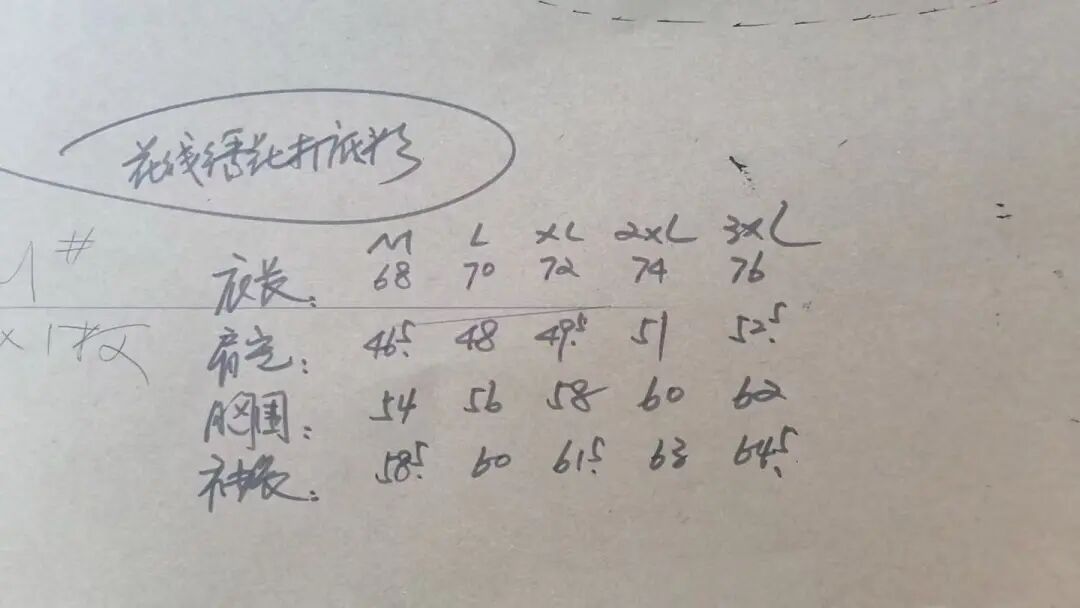 花线绣花打底衫
M L XL 2XL 3XL
衣长: 68 70 72 74 76
肩宽: 46.5 48 49.5 51 52.5
胸围: 54 56 58 60 62
袖长: 58.5 60 61.5 63 64.5
#
x 1